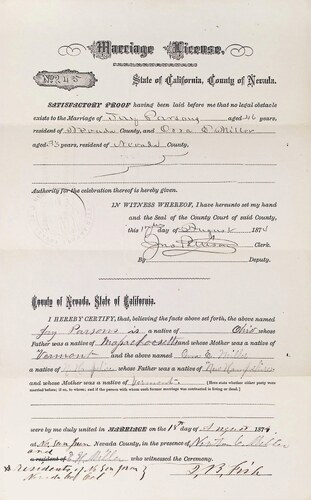 Marriage License.
No 245
State of California, County of Nevada.
SATISFACTORY PROOF having been laid before me that no legal obstacle
exists to the Marriage of Jay Parsons aged 46 years,
resident of Nevada County, and Dora E Miller
aged 43 years, resident of Nevada County
Authority for the celebration thereof is hereby given.
IN WITNESS WHEREOF, I have hereunto set my hand
and the Seal of the County Court of said County,
this 17th day of August 1874
Clerk.
By Deputy.
County of Nevada, State of California.
I HEREBY CERTIFY, that, believing the facts above set forth, the above named
Jay Parsons is a native of Ohio whose
Father was a native of Massachusetts and whose Mother was a native of
Vermont and the above named
a whose Father was a native of New Hampshire
and whose Mother was a native of Vermont (Here state whether either party were
married before; if so, to whom; and if the person with whom such former marriage was contracted is living or dead.)
were by me duly united in MARRIAGE on the 18th day of August 1874
at No. San Juan Nevada County, in the presence of Newton C. Miller
and
a resident of E. H. Miller who witnessed the Ceremony.
residents of No San Juan
Nevada Co Cal